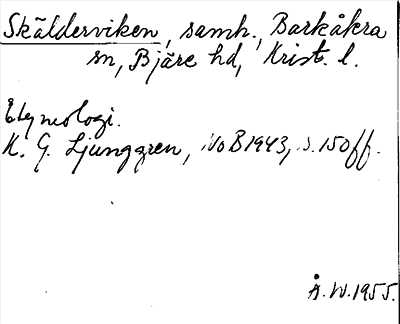 Skälderviken, samh., Barkåkra
sn, Bjäre hd, Krist. l.
Etymologi.
K. G. Ljunggren, NoB 1943, s. 150 ff.
Å. W. 1955.